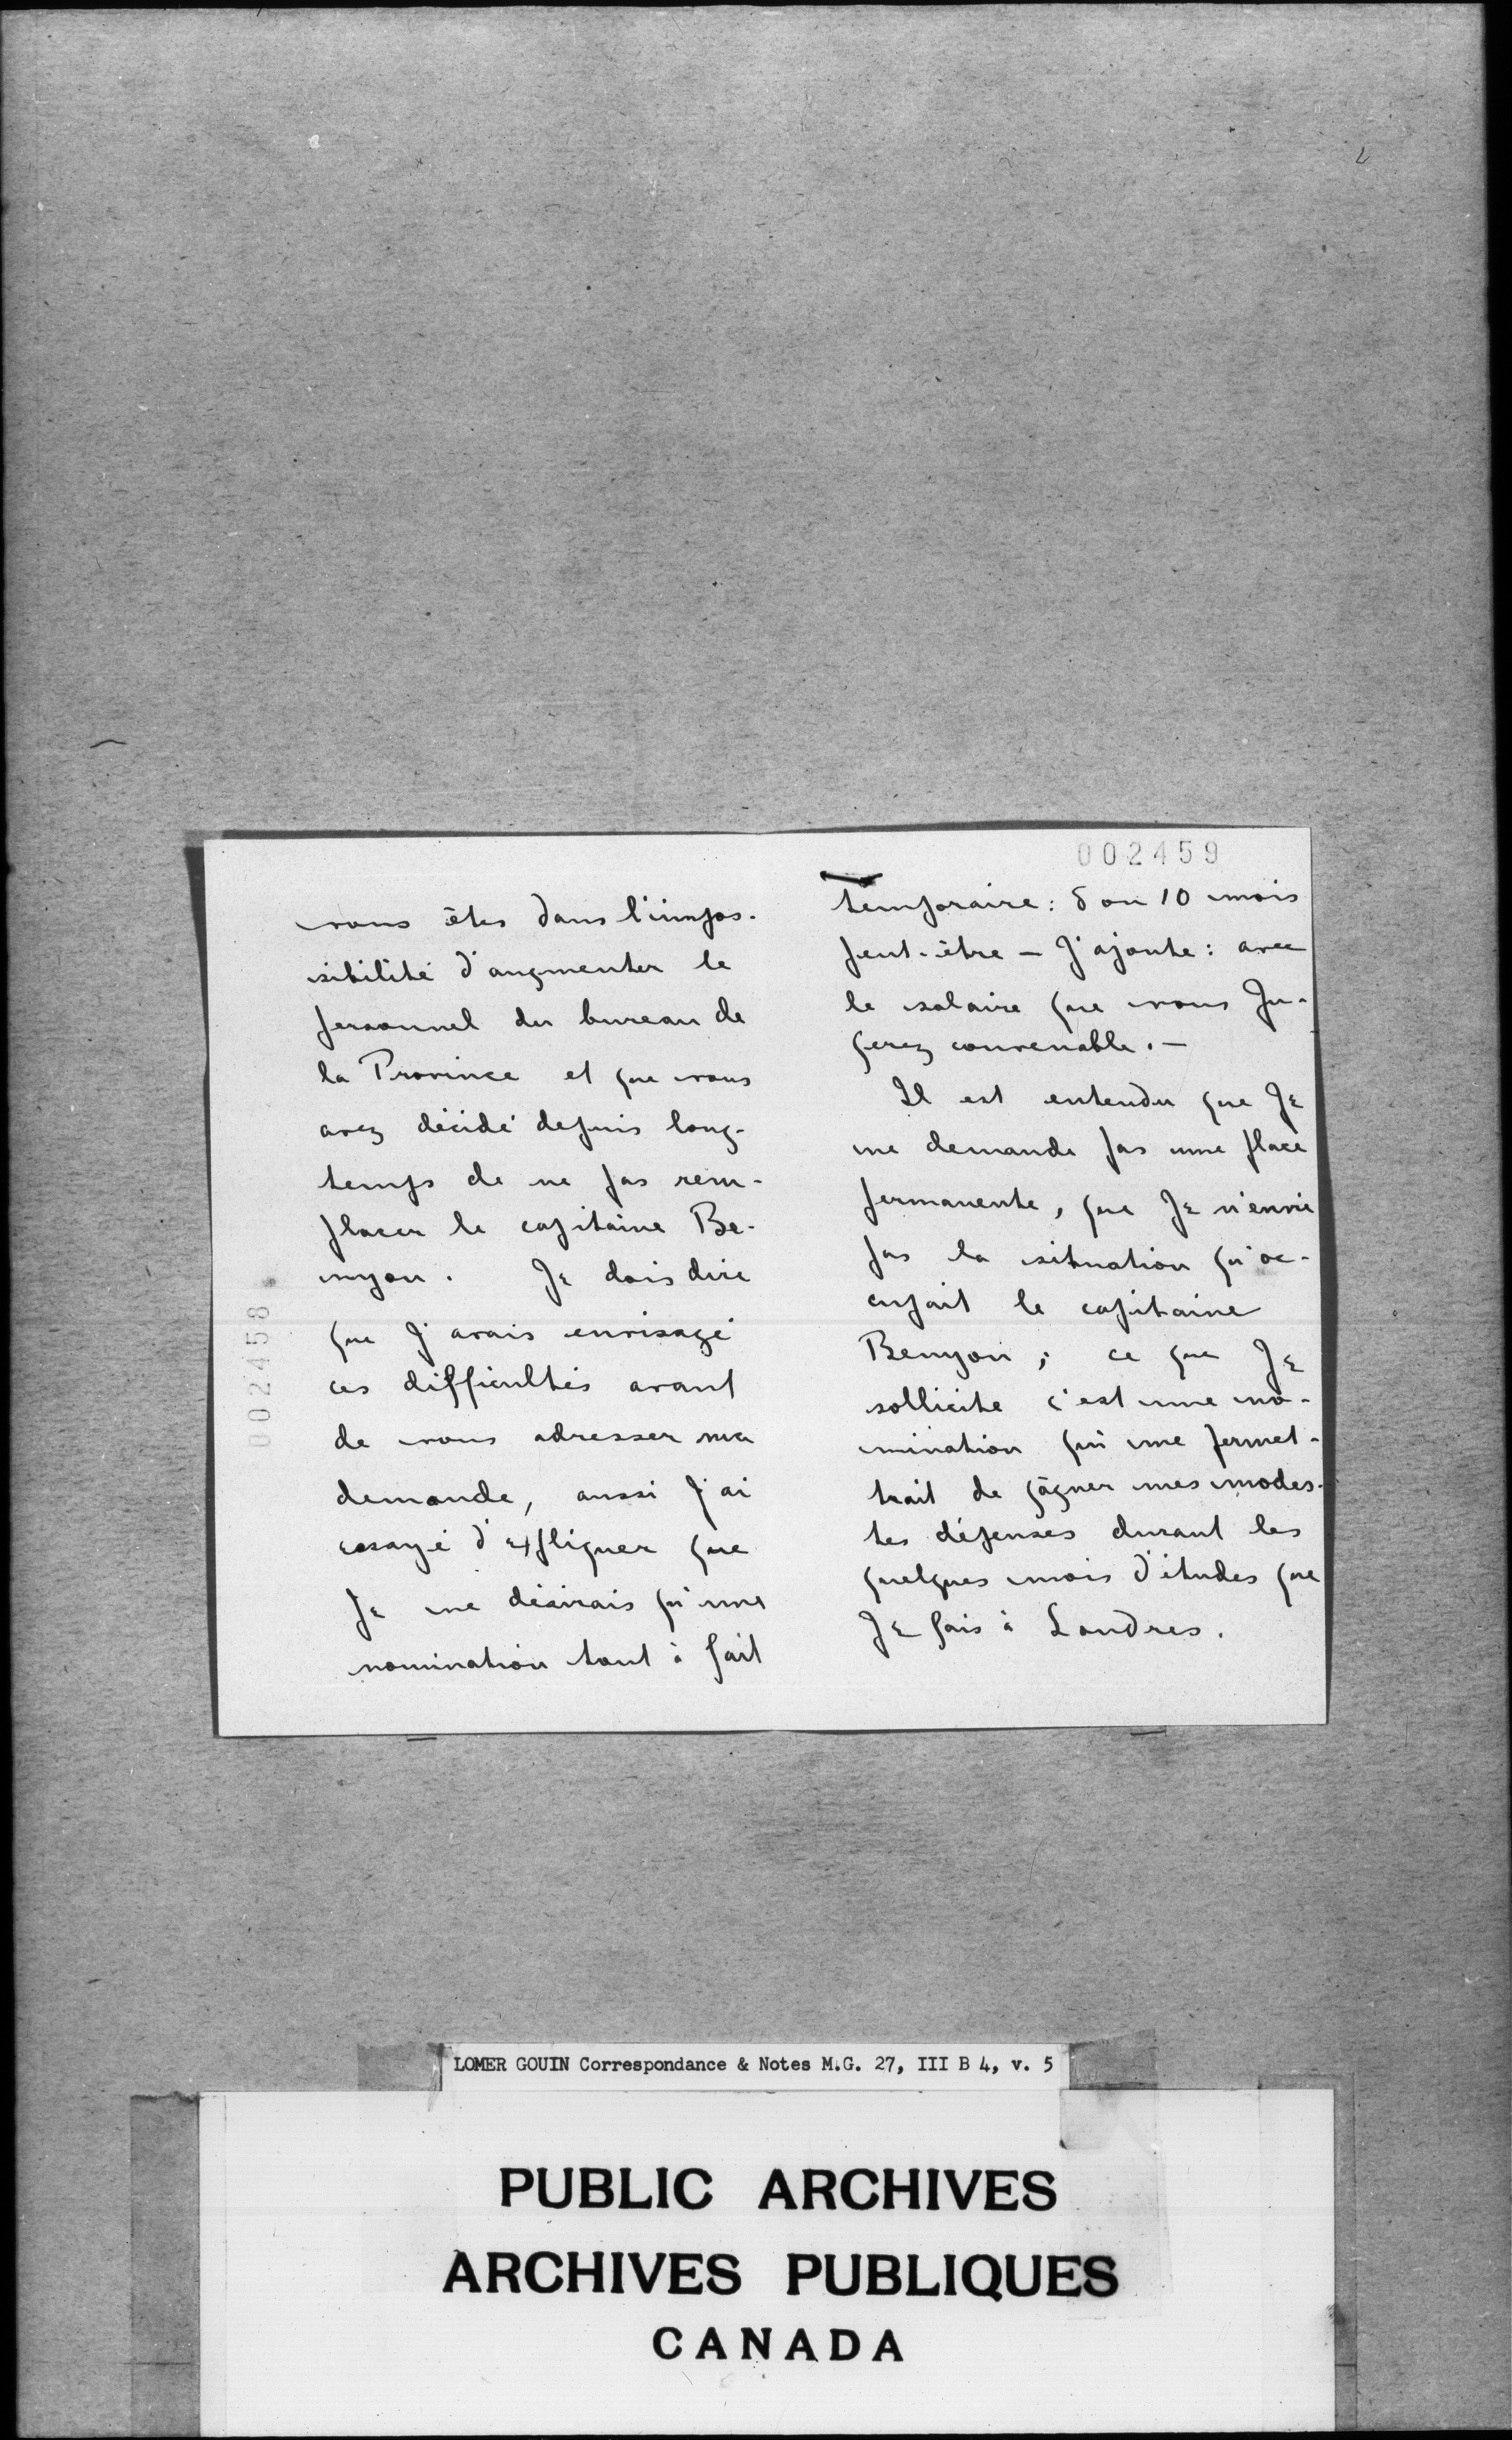 vous êtes dans l'impos-
sibilité d'augmenter le
personnel du bureau de
la Province et que vous
avez décidé depuis long-
temps de ne pas rem-
placer le capitaine Be-
nyon. Je dois dire
que j'avais envisagé
ces difficultés avant
de vous adresser ma
demande, aussi j'ai
essayé d'expliquer que
je ne désirais qu'une
nomination tout à fait
002458
002459
temporaire: 8 ou 10 mois
peut-être – J'ajoute: avec
le salaire que vous ju-
gerez convenable. –
Il est entendu que je
ne demande pas une place
permanente, que je n'envie
pas la situation qu'oc-
cupait le capitaine
Benyon; ce que je
sollicite c'est une no-
mination qui me permet-
trait de gâgner mes modes-
tes dépenses durant les
quelques mois d'études que
je fais à Londres.
LOMER GOUIN Correspondance & Notes M.G. 27, III B 4, v. 5
PUBLIC ARCHIVES
ARCHIVES PUBLIQUES
CANADA